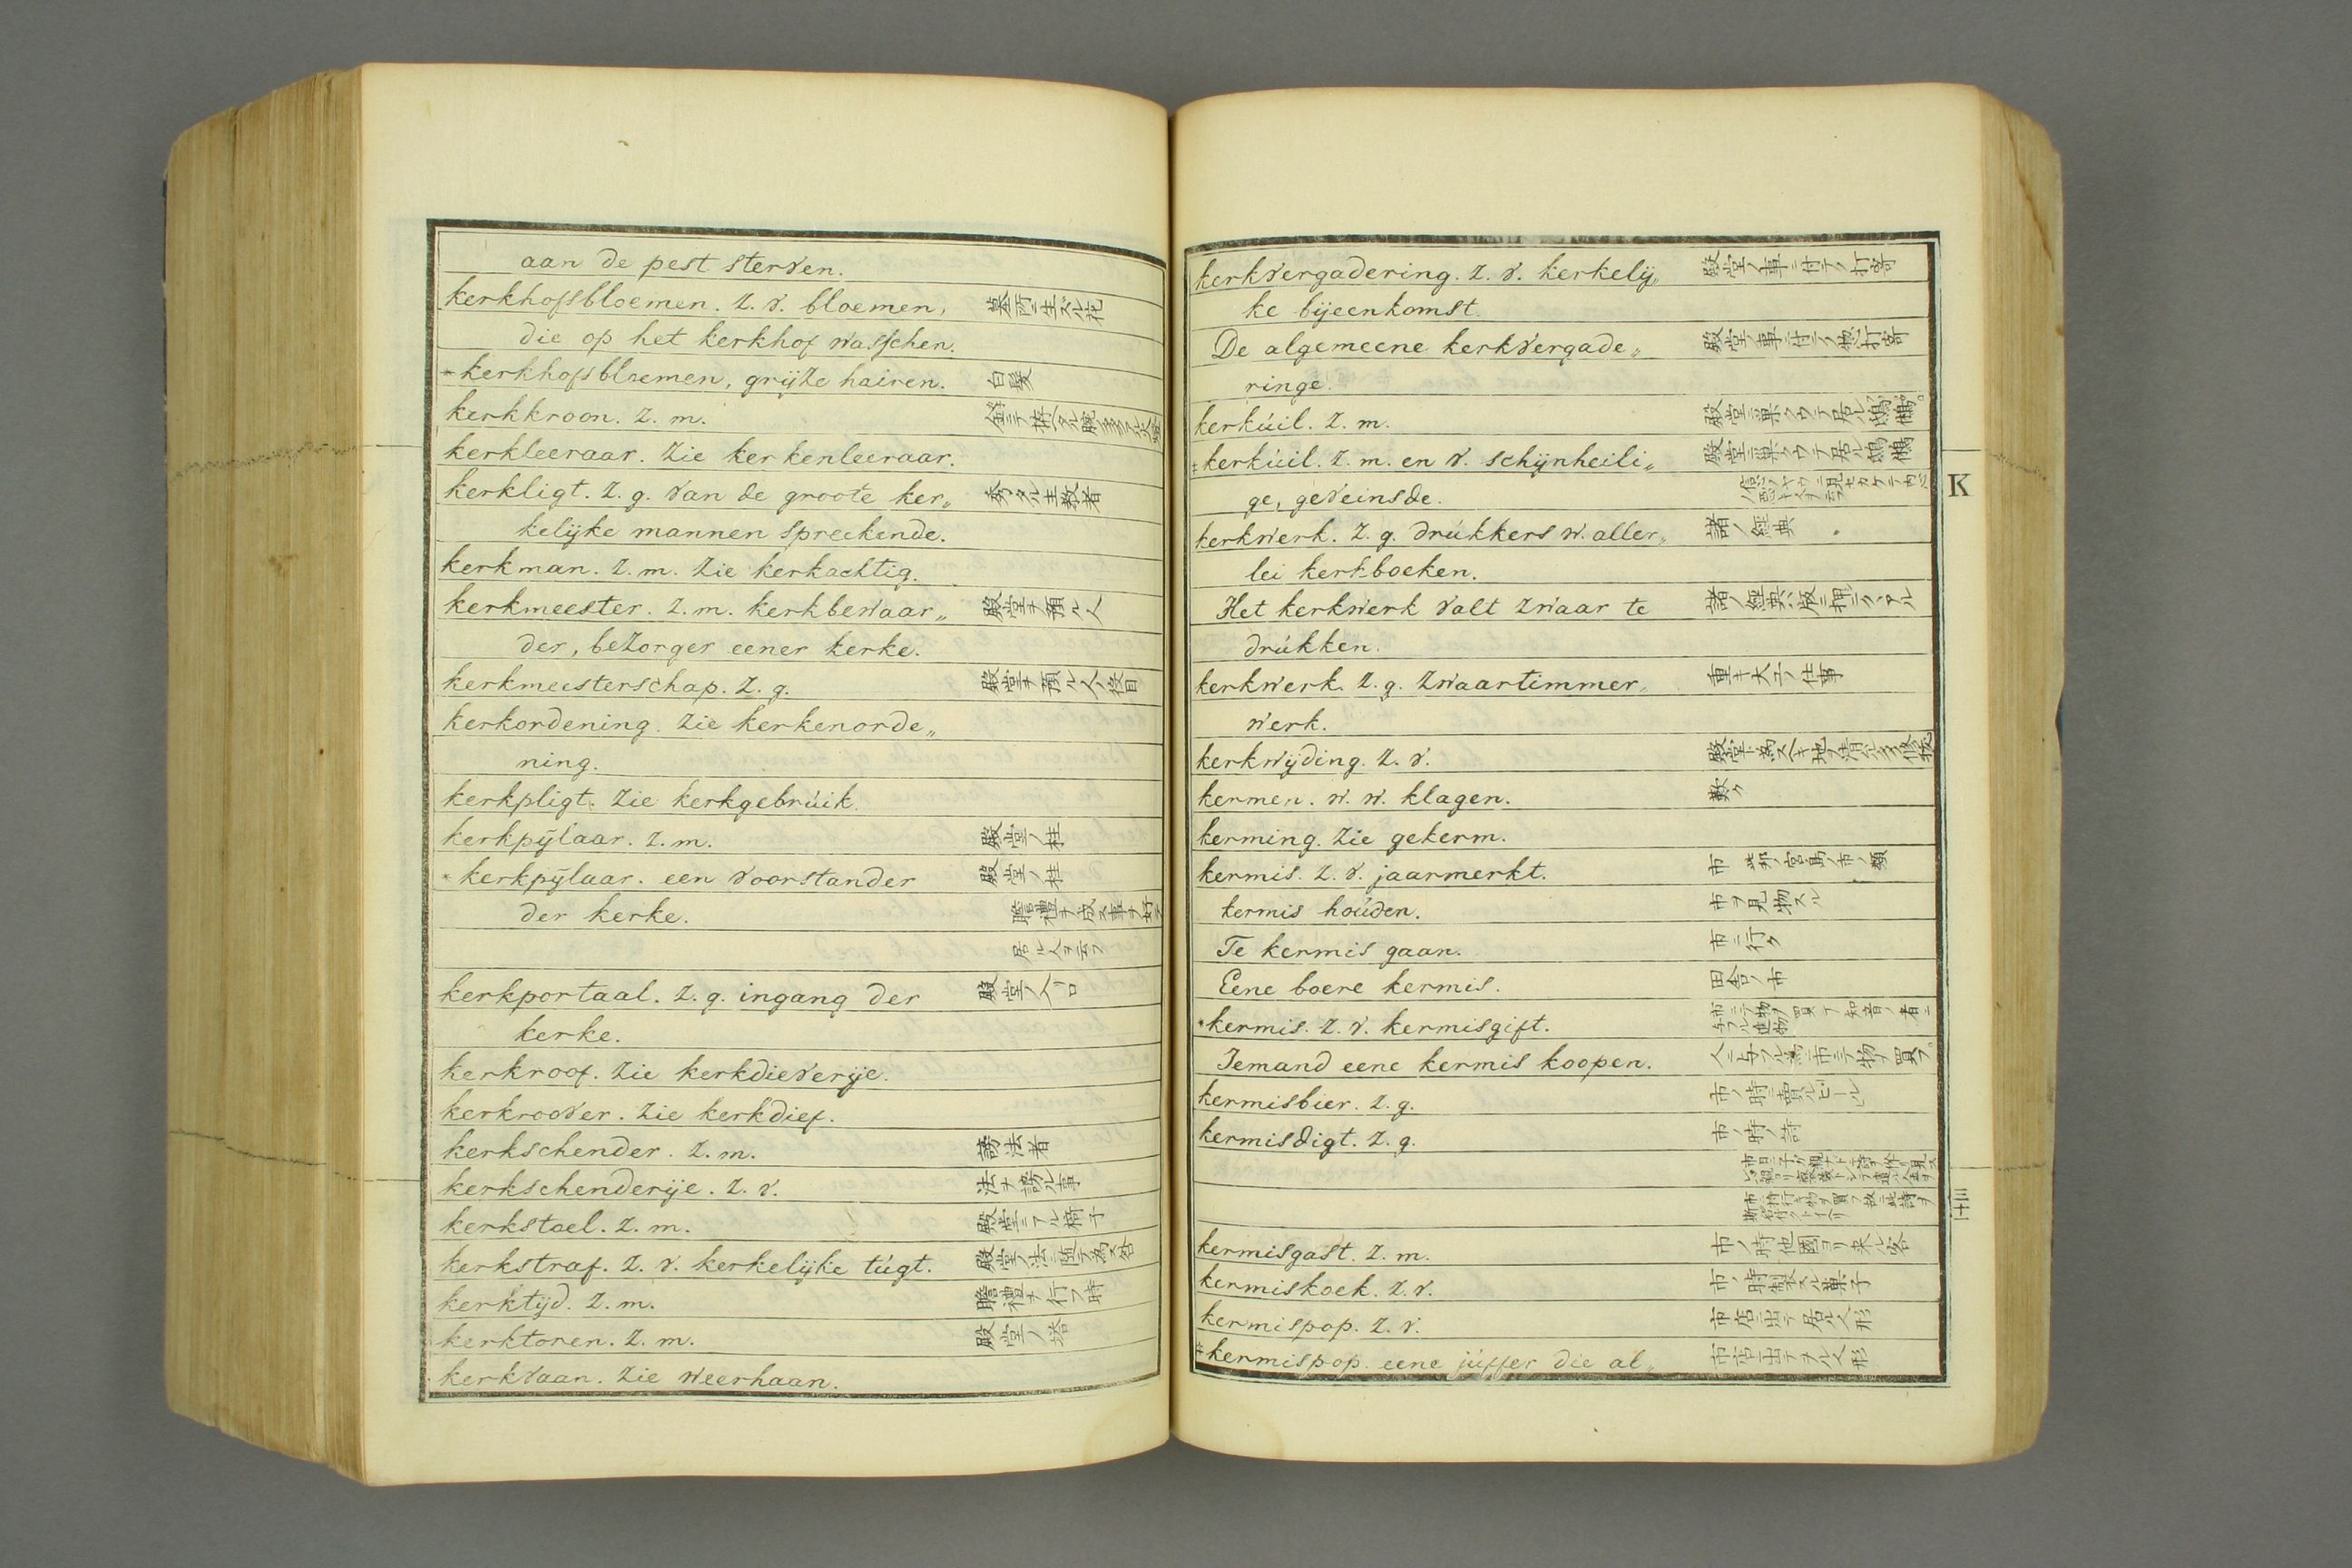 aan de pest sterven.
kerkhofsbloemen. z. v. bloemen, 墓所ニ生ズル花
die op het kerkhof wasschen.
*kerkhofsbloemen, grijze hairen. 白髪
kerkkroon. z. m.
kerkleeraar. zie kerkenleeraar.
kerkligt. z. g. van de groote ker„ 秀タル主教者
kelijke mannen spreekende.
kerkman. z. m. zie kerkachtig.
kerkmeester. z. m. kerkbewaar„ 殿堂ヲ預ル人
der, bezorger eener kerke.
kerkmeesterschap. z. g. 殿堂ヲ預ル人ノ役目
kerkordening. zie kerkenorde„
ning.
kerkpligt. zie kerkgebrúik.
kerkpijlaar. z. m. 殿堂ノ柱
*kerkpijlaar. een voorstander 殿堂ノ柱
der kerke. 瞻禮ヲ成ス事ヲ好テ
居ル人ヲ云フ
kerkportaal. z. g. ingang der 殿堂ノ入口
kerke.
kerkroof. zie kerkdieverije.
kerkroover. zie kerkdief.
kerkschender. z. m. 謗法者
kerkschenderije. z. v. 法ヲ謗ル事
kerkstoel. z. m. 殿堂ニアル椅子
kerkstraf. z. v. kerkelijke túgt. 殿堂ノ法ニ随テ為ス咎
kerktijd. z. m. 瞻禮ヲ行フ時
kerktoren. z. m. 殿堂ノ塔
kerkvaan. zie weerhaan.
kerkvergadering. z. v. kerkelij„ 殿堂ノ事ニ付テノ打寄
ke bijeenkomst.
De algemeene kerkvergade„ 殿堂ノ事ニ付テノ惣打寄
ringe.
kerkúil. z. m. 殿堂ニ巣クウテ居ル鵂鶹
*kerkúil. z. m. en v. schijnheili„ 殿堂ニ巣クウテ居ル鵂鶹
ge, geveinsde.
K
kerkwerk. z. g. drúkkers w. aller„ 諸ノ經典
lei kerkboeken.
Het kerkwerk valt zwaar te 諸ノ經典ハ版ニ押ニクヽアル
drúkken.
kerkwerk. z. g. zwaartimmer„ 重キ大工ノ仕事
werk.
kerkwijding. z. v.
kermen. w. w. klagen. 歎ク
kerming. zie gekerm.
kermis. z. v. jaarmerkt. 市 此邦ノ宮島ノ市ノ類
kermis hoúden. 市ヲ見物スル
Te kermis gaan. 市ニ行ク
Eene boere kermis. 田舎ノ市
*kermis. z. v. kermisgift. 市ニテ物ヲ買フ知音ノ者ニ与フル進物
Iemand eene kermis koopen. 人ニ与フル為ニ市ニテ物ヲ買フ
kermisbier. z. g. 市ノ時ニ賣ルビール
kermisdigt. z. g. 市ノ時ノ詩
kermisgast. z. m. 市ノ時他國ヨリ来ル客
kermiskoek. z. v. 市ノ時製スル菓子
kermispop. z. v. 市店ニ出テ居ル人形
*kermispop. eene júffer die al„ 市店ニ出テヲル人形